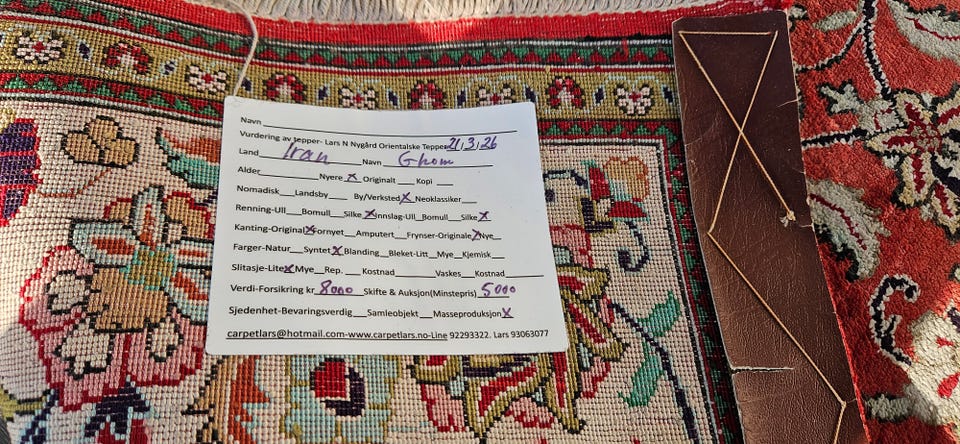 Navn
Vurdering av tepper- Lars N Nygård Orientalske Tepper 21/3/26
Land Iran Navn Ghom
Alder Nyere x Originalt Kopi
Nomadisk Landsby By/Verksted X Neoklassiker
Renning-Ull Bomull Silke X Innslag-Ull Bomull Silke X
Kanting-Original X Fornyet Amputert Frynser-Originale X Nye
Farger-Natur Syntet X Blanding Bleket-Litt Mye Kjemisk
Slitasje-Lite X Mye Rep. Kostnad Vaskes Kostnad
Verdi-Forsikring kr 8000 Skifte & Auksjon(Minstepris) 5000
Sjedenhet-Bevaringsverdig Samleobjekt Masseproduksjon X
carpetlars@hotmail.com-www.carpetlars.no-Line 92293322. Lars 93063077